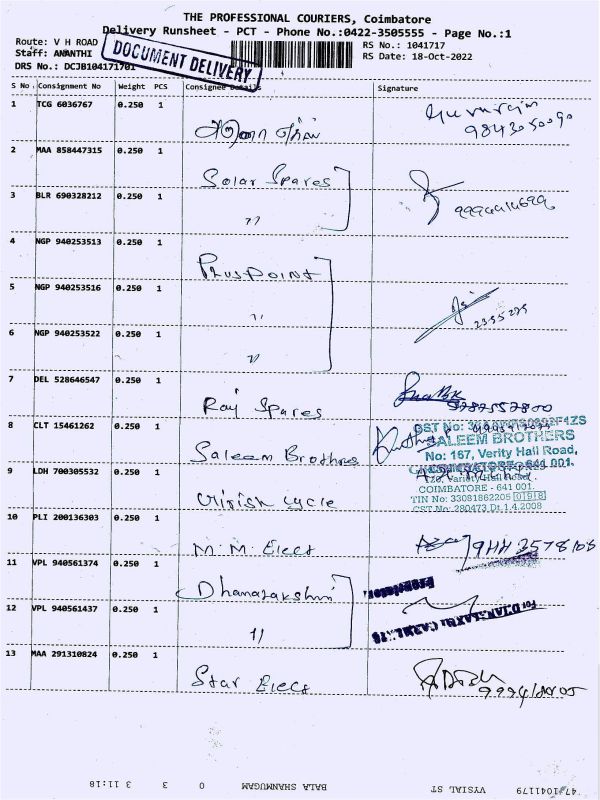 THE PROFESSIONAL COURIERS, Coimbatore
Delivery Runsheet - PCT - Phone No.:0422-3505555 - Page No.:1
Route: V H ROAD
RS No.: 1041717
Staff: ANANTHI
RS Date: 18-Oct-2022
DRS No.: DCJB104171701
DOCUMENT DELIVERY
S No. Consignment No Weight PCS Consignee Details Signature
1 TCG 6036767 0.250 1
9843050090
2 MAA 858447315 0.250 1
Solar Spares
3 BLR 690328212 0.250 1
"
4 NGP 940253513 0.250 1
PlusPoint
5 NGP 940253516 0.250 1
"
2355275
6 NGP 940253522 0.250 1
"
7 DEL 528646547 0.250 1
Raj Spares
8 CLT 15461262 0.250 1
Saleem Brothres
SALEEM BROTHERS
No: 167, Verity Hall Road,
COIMBATORE - 641 001.
9 LDH 700305532 0.250 1
cycle
COIMBATORE - 641 001.
TIN No: 33081862205
CST No: 280473 Dt 1.4.2008
10 PLI 200136303 0.250 1
M.M. Elect
11 VPL 940561374 0.250 1
Dhanalakshmi
12 VPL 940561437 0.250 1
"
Proprietor.
13 MAA 291310824 0.250 1
Star Elect
47/1041179 VYSIAL ST BALA SHANMUGAM 0 3 3 11:18